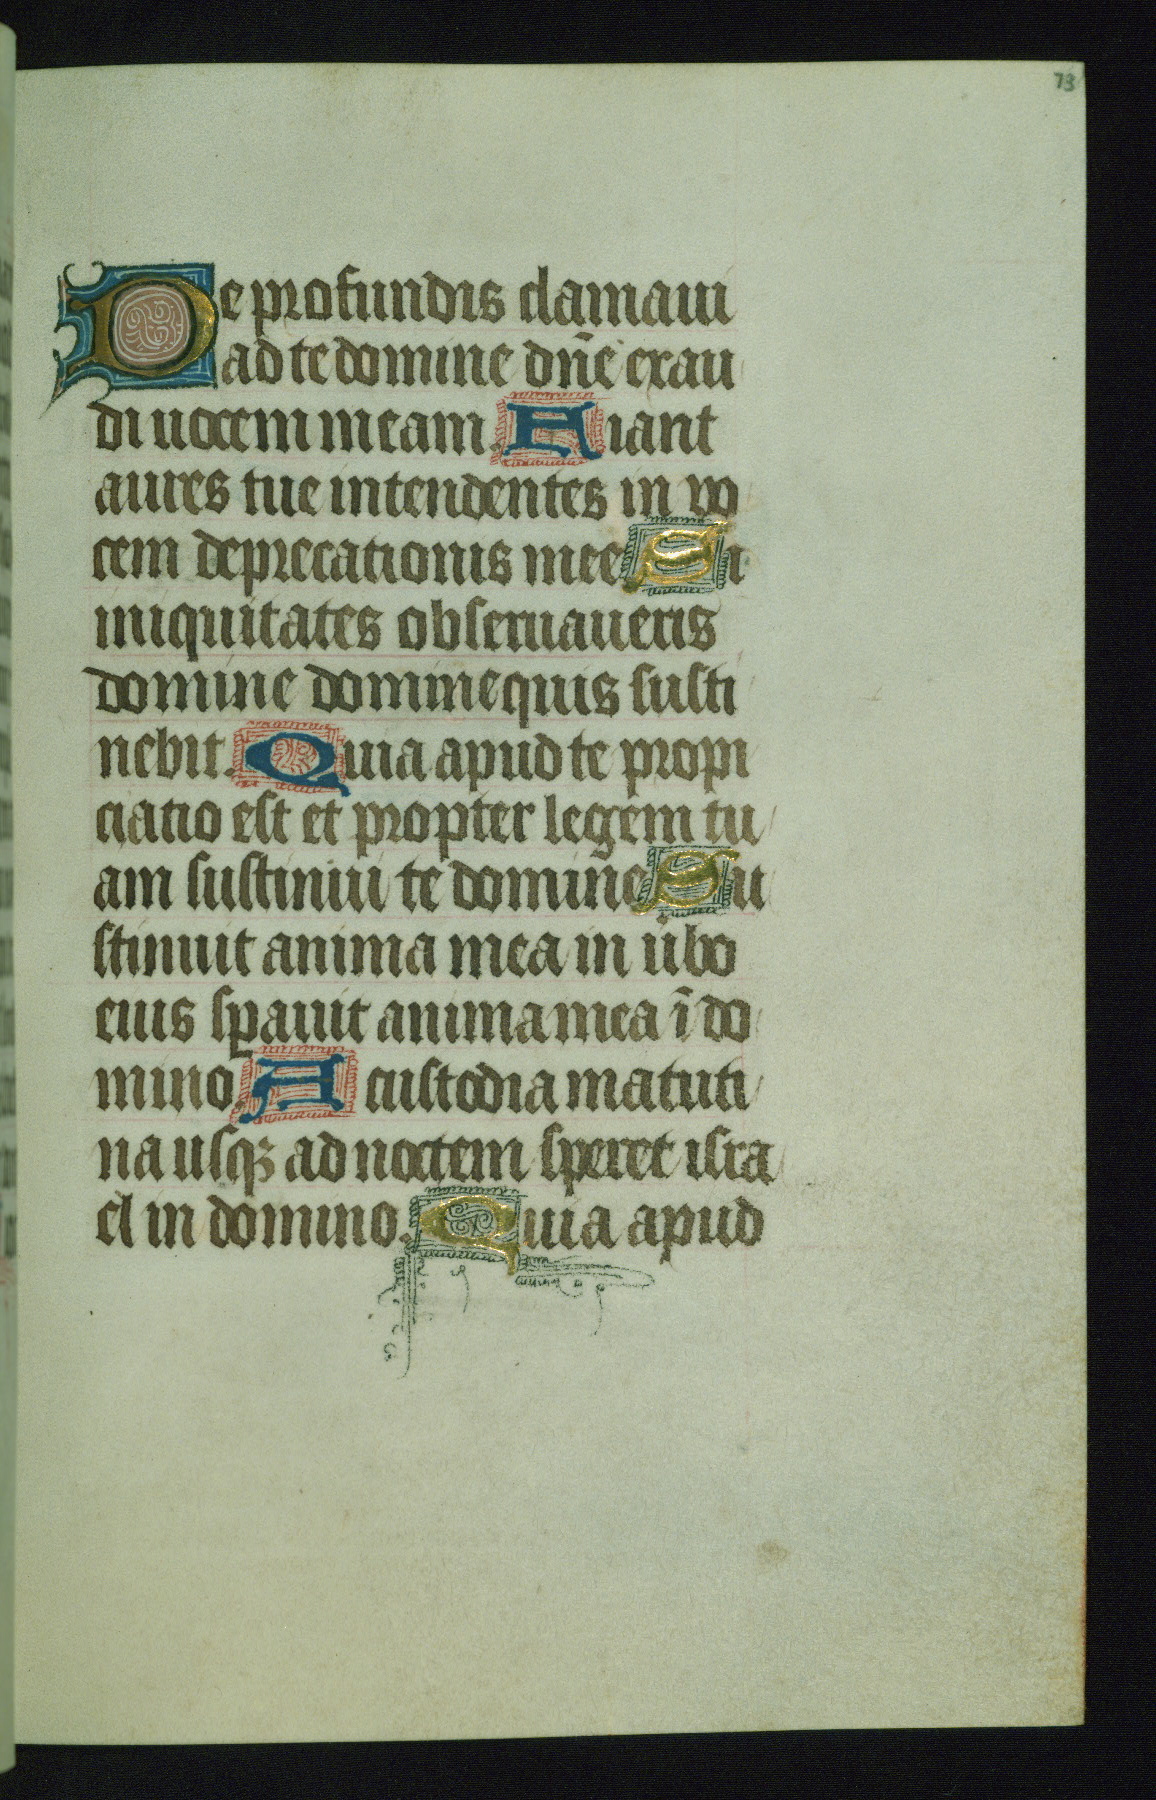 73
De profundis clamaui
ad te domine dn̄e exau
di uocem meam. Fiant
aures tue intendentes in vo
cem deprecationis mee Si
iniquitates obseruaueris
domine domine quis susti
nebit. Quia apud te propi
ciatio est et propter legem tu
am sustiniui te domine Su
stinuit anima mea in ūbo
eius spauit anima mea ī do
mino. A custodia matuti
na usqꝫ ad noctem speret isra
el in domino. Quia apud